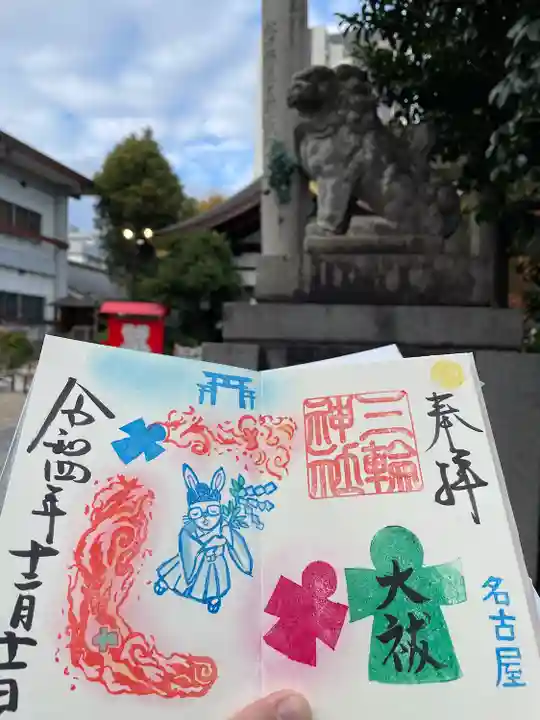 奉拝
三輪
神社
大祓
名古屋
令和四年
十二月十一日